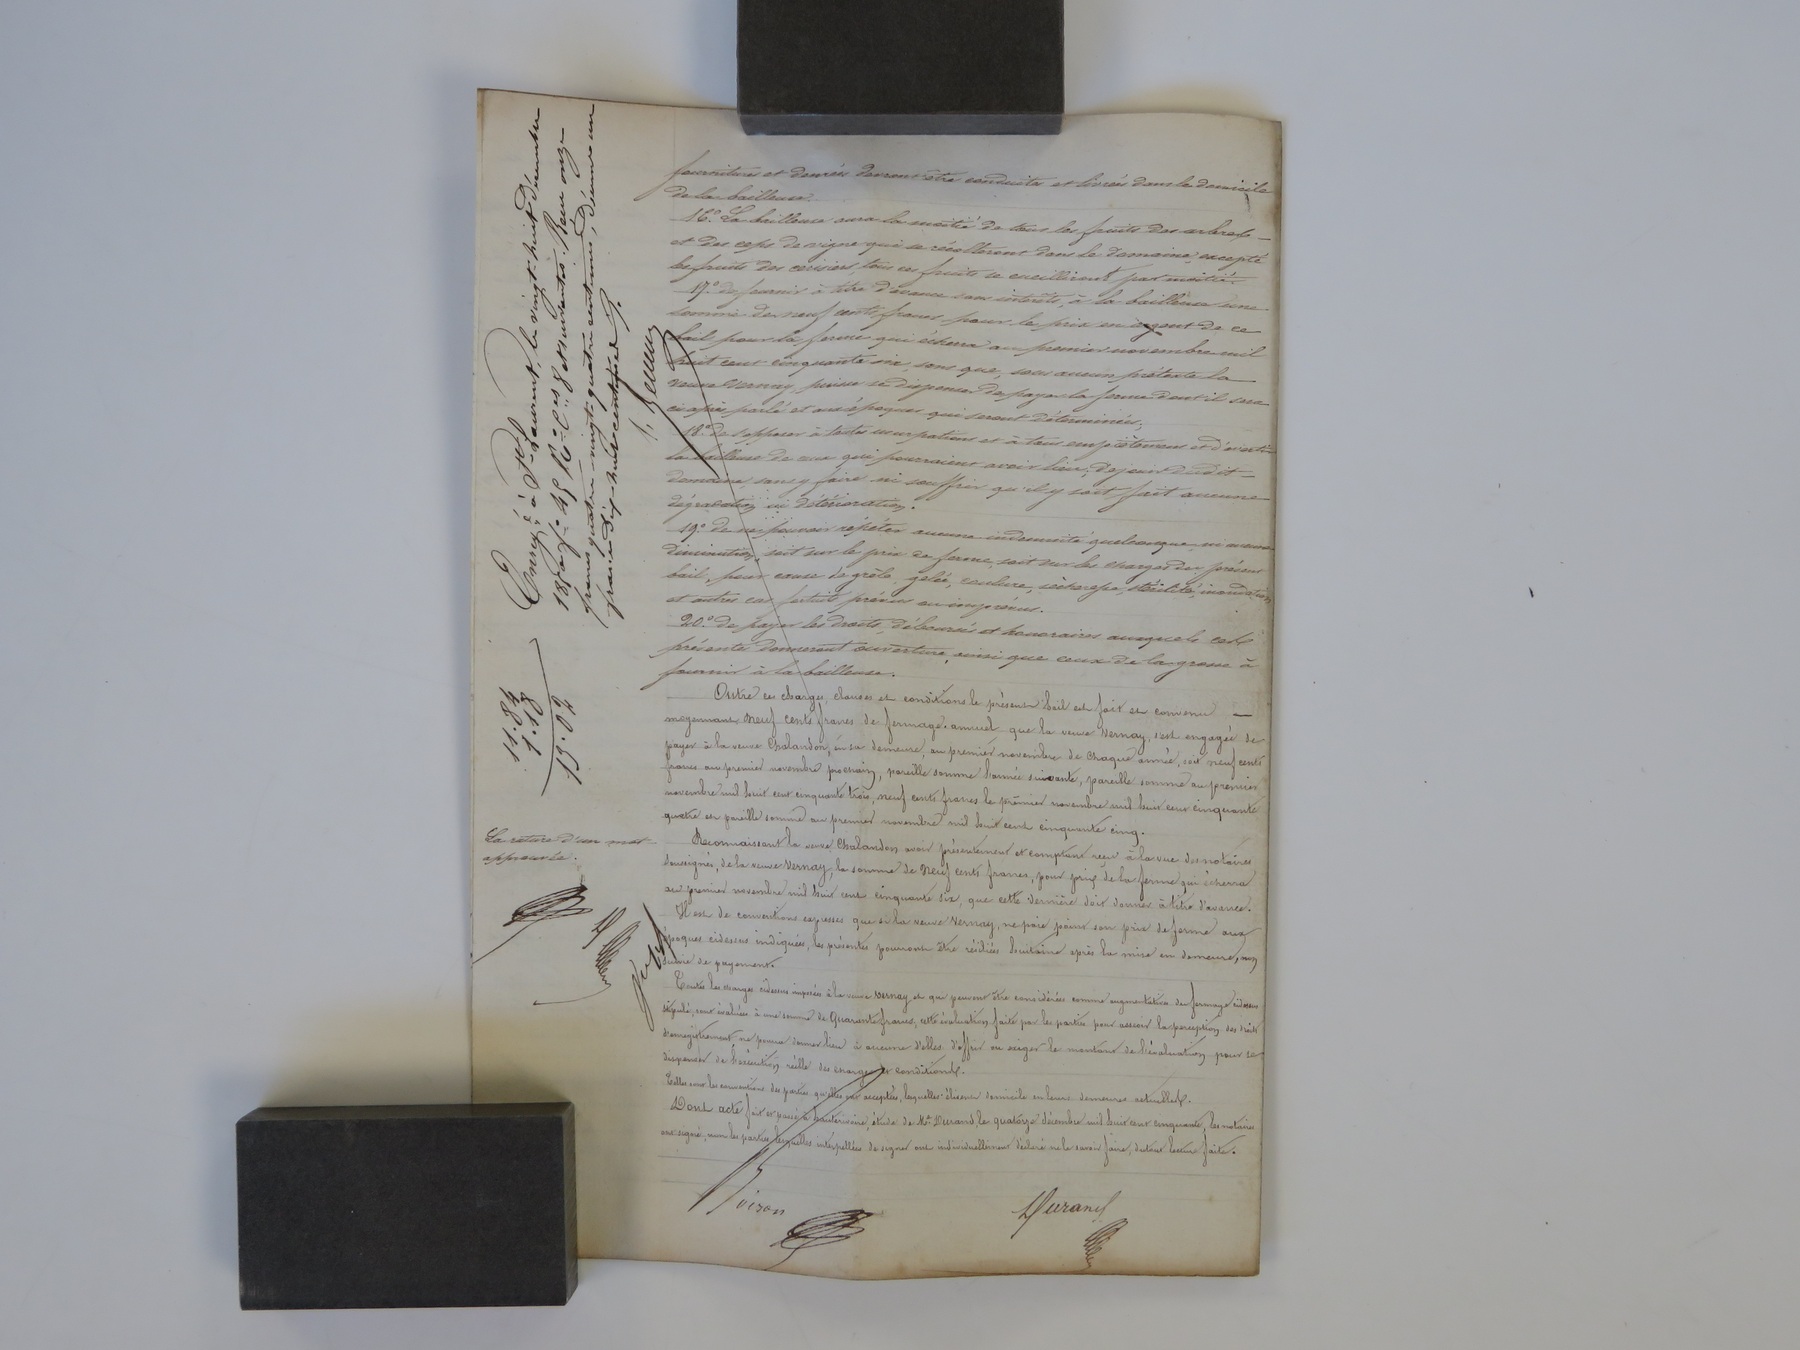 fournitures et denrées devront être conduites et livrées dans le domicile
de la bailleuse.
16.° La bailleuse aura la moitié de tous les fruits des arbres
et des ceps de vigne qui se récolteront dans le domaine, excepté
les fruits des cerisiers, tous ces fruits se cueilliront par moitié.
17.° de fournir à titre d'avance sans intérêts, à la bailleuse une
somme de neuf cents francs pour le prix en argent de ce
bail pour la ferme qui écherra au premier novembre mil
huit cent cinquante six, sans que, sous aucun prétexte la
veuve Vernay, puisse se dispenser de payer la ferme dont il sera
ci après parlé et aux époques qui seront déterminées.
18.° de s'opposer à toutes usurpations et à tous empiètemens et d'avertir
la bailleuse de ceux qui pourraient avoir lieu, de jouir dudit
domaine, sans y faire ni souffrir qu'il y soit fait aucune
dégradation ni détérioration.
19.° de ne pouvoir répéter aucune indemnité quelconque, ni aucune
diminution, soit sur le prix de ferme, soit sur les charges du présent
bail, pour cause de grêle, gelée, coulure, sécheresse, stérilité, inondation
et autres cas fortuits prévus ou imprévus.
20.° de payer les droits, déboursés et honoraires auxquels ces
présentes donneront ouverture, ainsi que ceux de la grosse à
fournir à la bailleuse.
Outre ces charges, clauses et conditions le présent bail est fait et convenu
moyennant Neuf cents francs de fermage annuel que la veuve Vernay, s'est engagée de
payer à la veuve Chalandon, en sa demeure, au premier novembre de chaque année, soit neuf cents
francs au premier novembre prochain, pareille somme l'année suivante, pareille somme au premier
novembre mil huit cent cinquante trois, neuf cents francs le premier novembre mil huit cent cinquante
quatre et pareille somme au premier novembre mil huit cent cinquante cinq.
Reconnaissant la veuve Chalandon avoir présentement et comptant reçu à la vue des notaires
soussignés, de la veuve Vernay, la somme de Neuf cents francs, pour prix de la ferme qui écherra
au premier novembre mil huit cent cinquante six, que cette dernière doit donner à titre d'avance.
Il est de conventions expresses que si la veuve Vernay, ne paie point son prix de ferme aux
époques cidessus indiquées, les présentes pourront être résiliées huitaine après la mise en demeure, non
suivie de payement.
Toutes les charges cidessus imposées à la veuve Vernay et qui peuvent être considérées comme augmentation du fermage cidessus
stipulé, sont évaluées à une somme de Quarante francs, cette évaluation faite par les parties pour asseoir la perception des droits
d'enregistrement, ne pourra donner lieu à aucune d'elles d'offrir ou exiger le montant de l'évaluation pour se
dispenser de l'exécution réelle des charges et conditions.
Telles sont les conventions des parties qu'elles ont acceptées, lesquelles élisent domicile en leurs demeures actuelles.
Dont acte fait et passé à hauterivoire, étude de Mᵉ Durand, le quatorze décembre mil huit cent cinquante, les notaires
ont signé, non les parties, lesquelles interpellées de signer ont individuellement déclaré ne le savoir faire, du tout lecture faite.
Voizon
Durand
Enreg.é à St Laurent, le vingt huit Décembre
1850 f° 48 R° C.es 8 et suivantes. Reçu onze
francs quatre vingt quatre centimes, Décime un
franc dix huit centimes.
11.84
1.18
13.02
La rature d'un mot
approuvée.